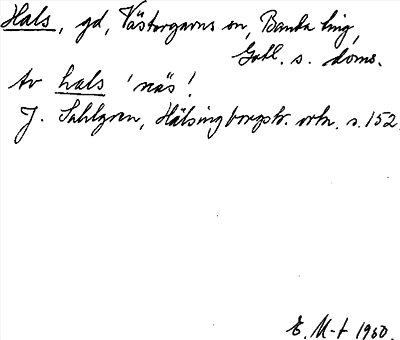 Hals, gd, Västergarns sn, Banda ting,
Gotl. s. doms.
Av hals 'näs'.
J. Sahlgren, Hälsingborgstr. ortn. s. 152.
E. M-t 1950.